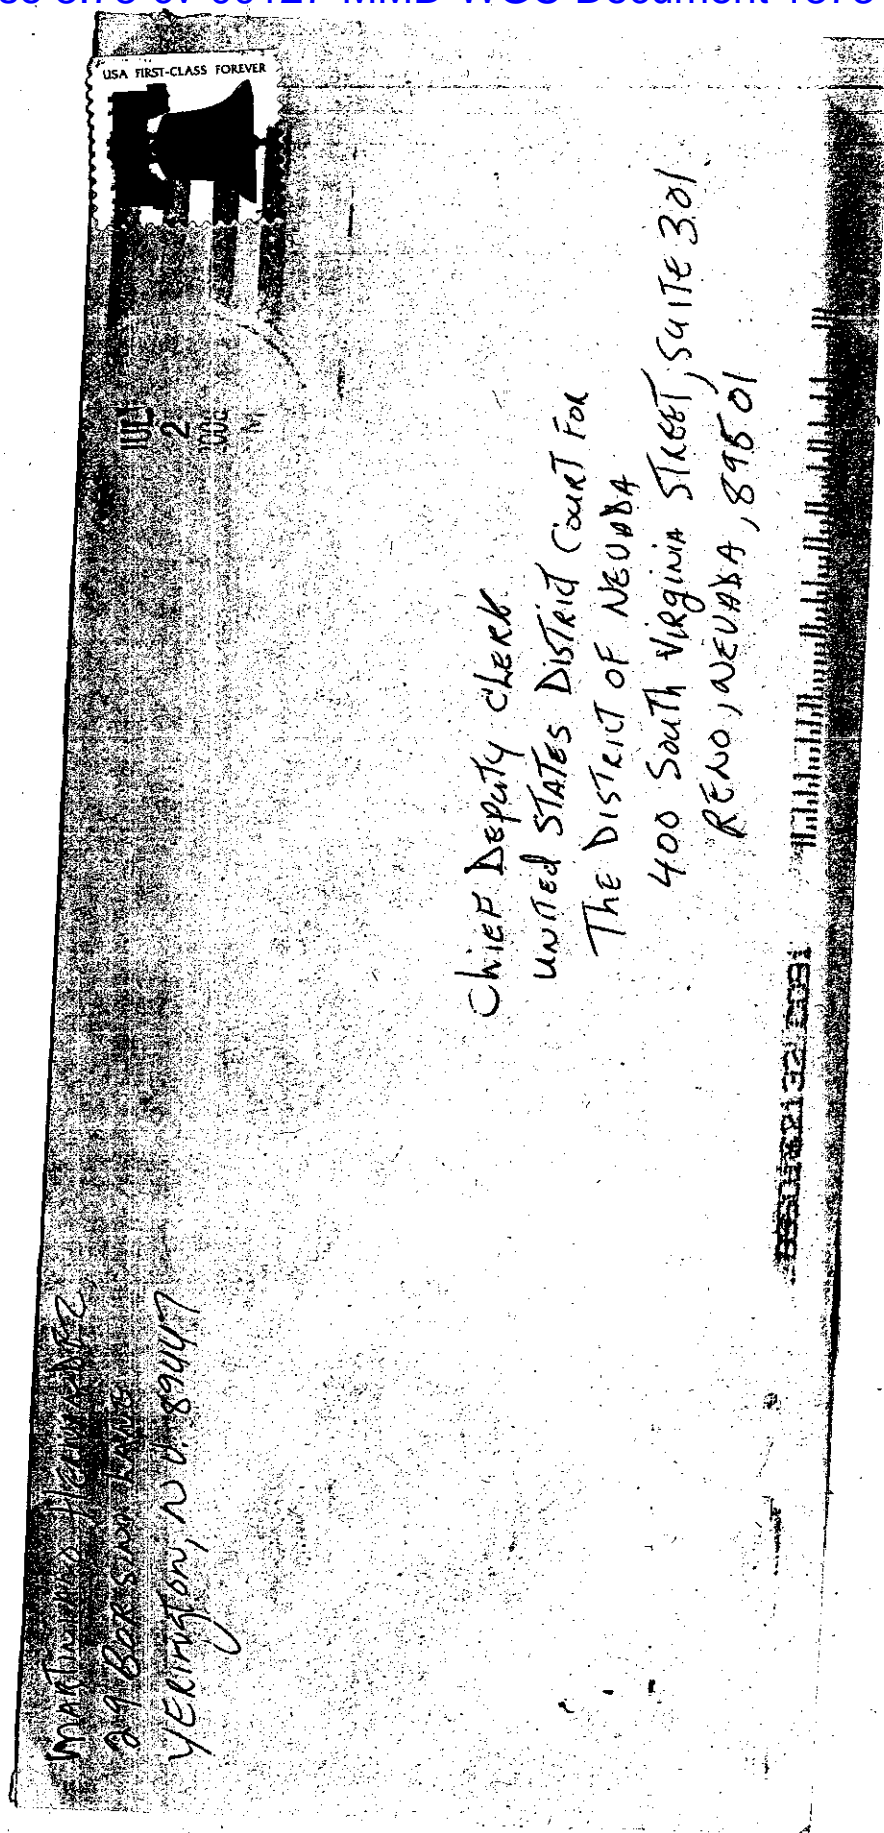 USA FIRST-CLASS FOREVER
JUL
2
MARTINIANO HERNANDEZ
29 BORSINI LANE
YERINGTON, NV. 89447
ChiEF DEPUTY CLERK
UNITED STATES DISTRICT COURT FOR
The DISTRICT OF NEVADA
400 South VIRginIA STREET, SUITE 301
RENO, NEVADA, 89501